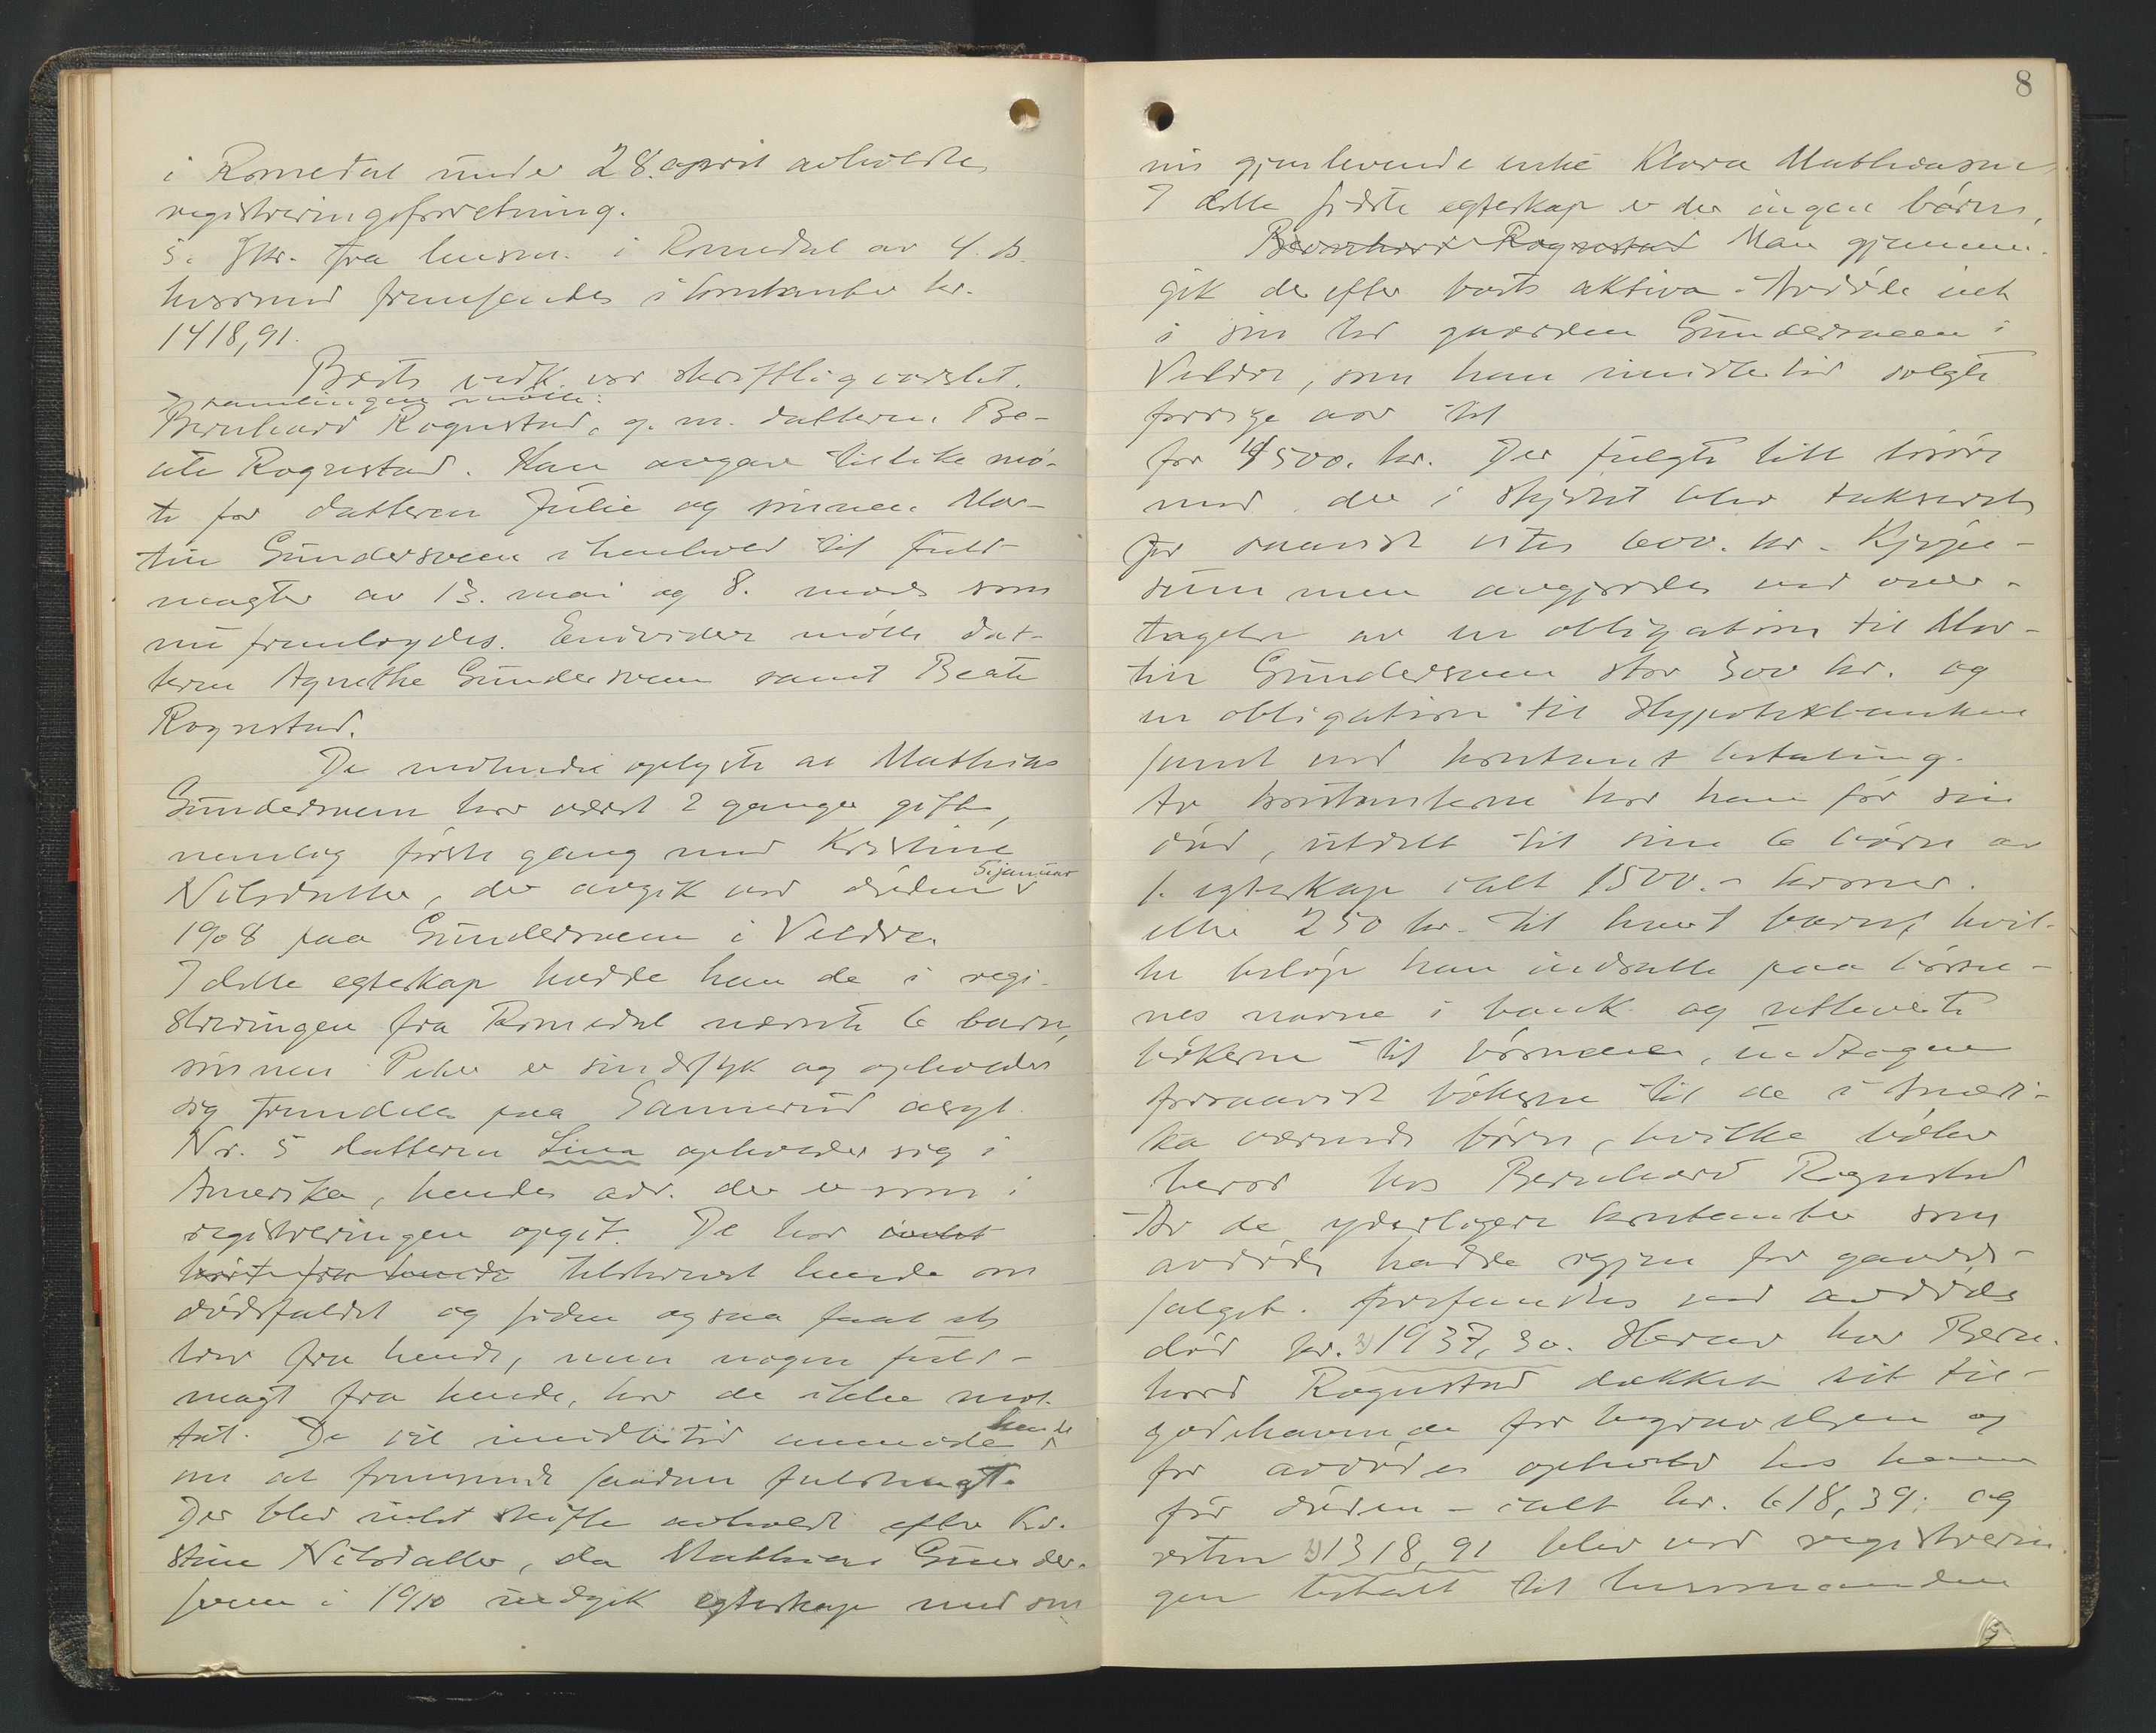 i Romedal under 28. april avholdte
registreringsforretning.
5. Skr. fra lensm. i Romedal av 4. ds.
hvormed fremsendes i kontanter kr.
1418,91.
Boets vedk. var skriftlig varslet.
I samlingen møtte:
Bernhard Rognstad, g. m. datteren Be-
ate Rognstad. Han avgav tillike mø-
te for datteren Julie og sønnen Mar-
tin Gundersveen i henhold til fuld-
magter av 13. mai og 8. mars som
nu fremlagdes. Endvidere møtte dat-
teren Agnethe Gundersveen samt Beate
Rognstad.
De møtende oplyste at Mathias
Gundersveen har været 2 ganger gift,
nemlig første gang med Kristine
Nilsdatter, der avgik ved døden 5 januar
1908 paa Gundersveen i Veldre.
I dette egteskap hadde han de i regi-
streringen fra Romedal nævnte 6 barn,
sønnen Peder er sindssyk og opholder
sig fremdeles paa Sannerud asyl.
Nr. 5 datteren Lina opholder sig i
Amerika, hendes adr. der er som i
registreringen opgit. De har intet
hørt fra hende tilskrevet hende om
dødsfaldet og siden ogsaa faat et
brev fra hende, men nogen fuld-
magt fra hende, har de ikke mot-
tat. De vil imidlertid anmode hende
om at fremsende saadan fuldmagt.
Der blev intet skifte avholdt efter Kri-
stine Nilsdatter, da Mathias Gunder-
sveen i 1910 indgik egteskap med sin
8
nu gjenlevende enke Klara Mathiasen.
I dette sidste egteskap er der ingen børn.
Bernhard Rognstad Man gjennem-
gik derefter boets aktiva. Avdøde eiet
i sin tid gaarden Gundersveen i
Veldre, som han imidlertid solgte
forrige aar til
for 4500. kr. Der fulgte litt løsøre
med der i skjøtet blev taksert
for saavidt vites 600. kr. Kjøpe-
summen avgjordes ved over-
tagelse av en obligation til Mar-
tin Gundersveen stor 300 kr. og
en obligation til Hypotekbanken
samt ved kontant betaling.
Av kontanterne har han før sin
død, utdelt til sine 6 børn av
1. egteskap ialt 1500.- kroner.
eller 250 kr. til hvert barn, hvil-
ke beløp han indsatte paa børne-
nes navne i bank og utleverte
bøkerne til børnene, undtagen
forsaavidt bøkerne til de i Ameri-
ka værende børn, hvilke bøker
beror hos Bernhard Rognstad
Av de yderligere kontanter som
avdøde hadde igjen for gaards-
salget. forefandtes ved avdødes
død kr. 1937,30. Herav har Bern-
hard Rognstad dækket sit til-
godehavende for begravelsen og
for avdødes ophold hos ham
før døden - ialt kr. 618,39; og
resten 1318,91 blev ved registrerin-
gen betalt til lensmanden